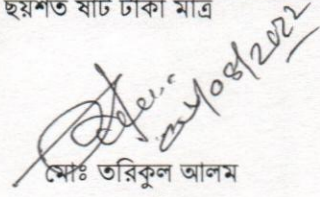 ছয়শত ষাট টাকা মাত্র
/08/2022
মোঃ তরিকুল আলম